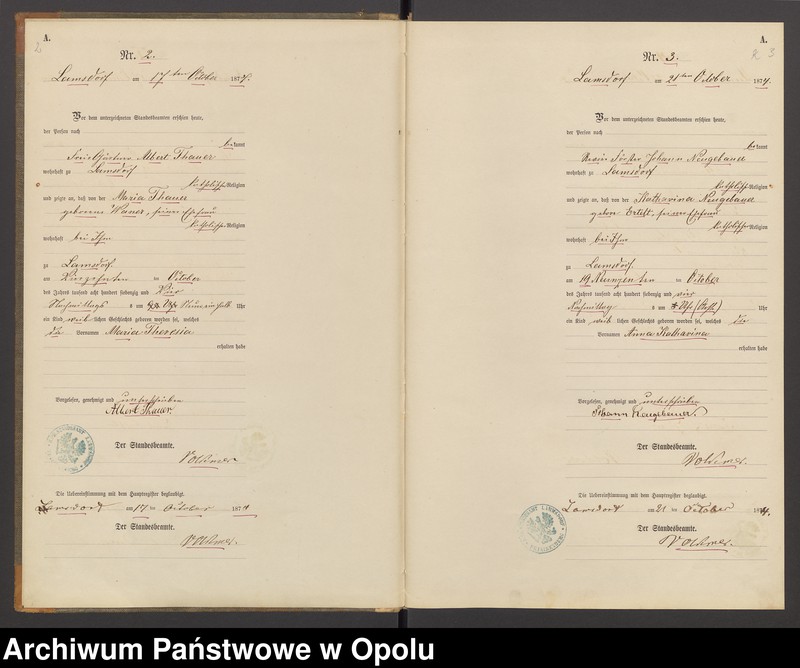 A.
2
Nr. 2.
Lamsdorf am 17ten October 1874.
Vor dem unterzeichneten Standesbeamten erschien heute,
der Person nach
bekannt
Albert Thauer
wohnhaft zu Lamsdorf
katholischer Religion
und zeigte an, daß von der Maria Thauer
geborene Waner, seiner Ehefrau
katholischer Religion
wohnhaft bei Ihm
zu Lamsdorf
am Vierzehnten ten October
des Jahres tausend acht hundert siebenzig und Vier
Nachmittags um Uhr
ein Kind weiblichen Geschlechts geboren worden sei, welches
die Vornamen Maria Theresia
erhalten habe
Vorgelesen, genehmigt und unterschrieben
Albert Thauer
Der Standesbeamte.
Volkmer
Die Uebereinstimmung mit dem Hauptregister beglaubigt.
Lamsdorf am 17 ten October 1874
Der Standesbeamte.
Volkmer.
A.
3
Nr. 3.
Lamsdorf am 21ten October 1874.
Vor dem unterzeichneten Standesbeamten erschien heute,
der Person nach
bekannt
Förster Johann Neugebauer
wohnhaft zu Lamsdorf
katholischer Religion
und zeigte an, daß von der Katharina Neugebauer
seiner Ehefrau
katholischer Religion
wohnhaft bei Ihm
zu Lamsdorf.
am 19 Neunzehnten October
des Jahres tausend acht hundert siebenzig und vier
Nachmittags um Uhr
ein Kind weiblichen Geschlechts geboren worden sei, welches die
Vornamen Anna Katharina
erhalten habe
Vorgelesen, genehmigt und unterschrieben
Johann Neugebauer.
Der Standesbeamte.
Volkmer.
Die Uebereinstimmung mit dem Hauptregister beglaubigt.
Lamsdorf am 21 ten October 1874.
Der Standesbeamte.
Volkmer.
Archiwum Państwowe w Opolu